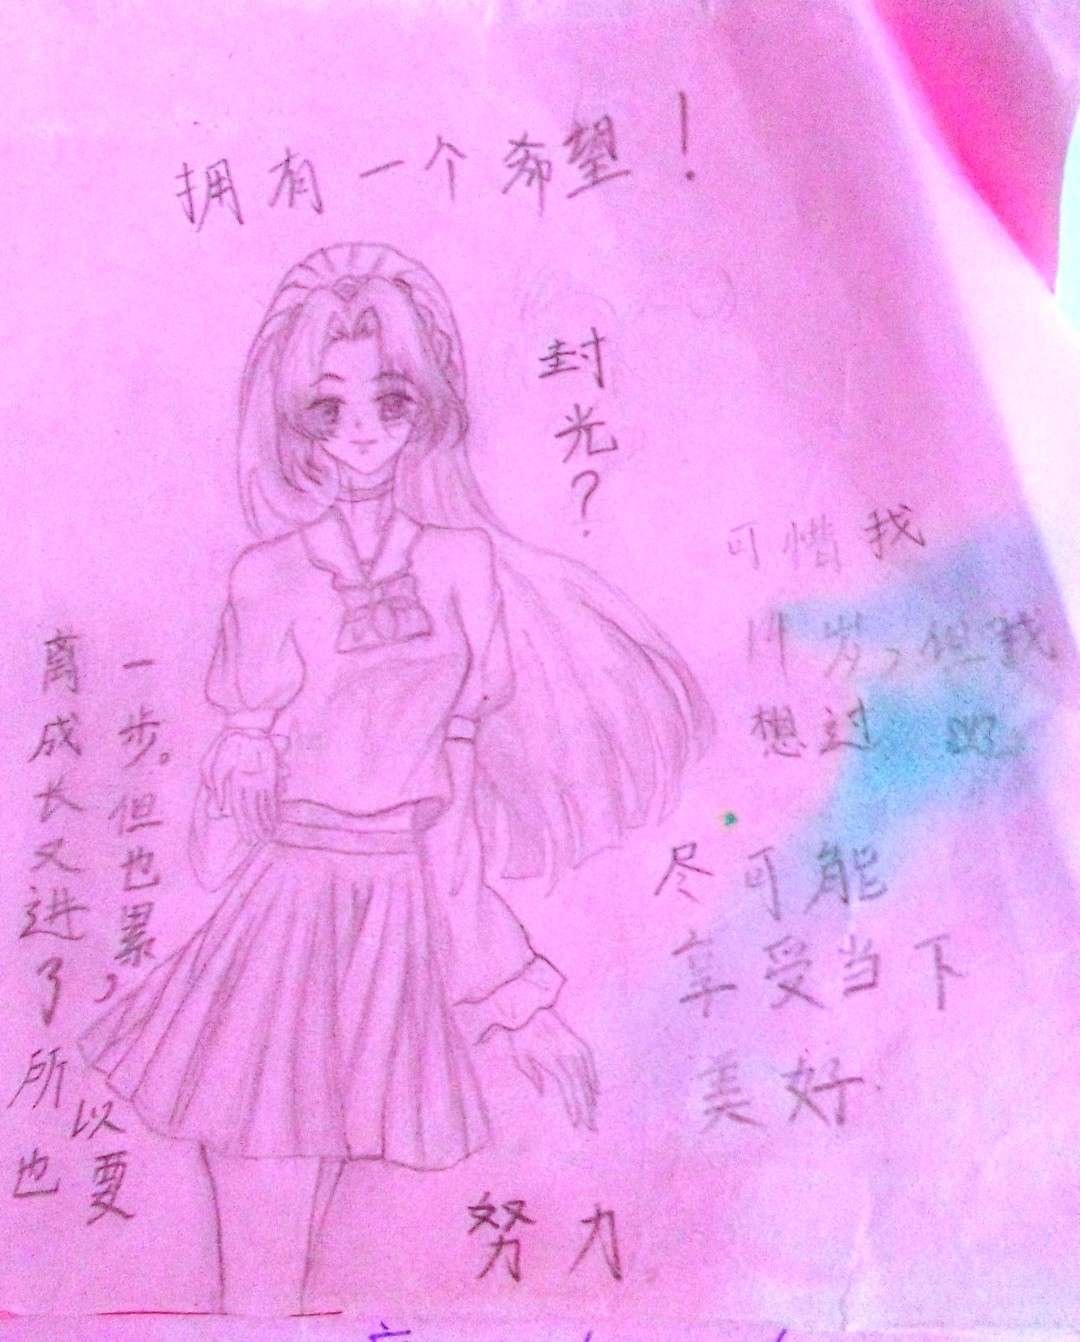 拥有一个希望！
封光？
可惜我
岁，但我
想过
尽可能
享受当下
美好
离成长又进了
一步。但也累，
所以要
也
努力